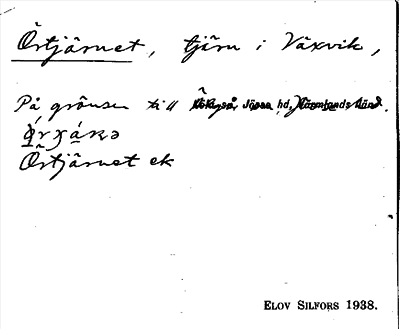 Örtjärnet, tjärn i Växvik,
På gränsen till Jösse hd, Värmlands län.
Örtjärnet ek
ELOV SILFORS 1938.